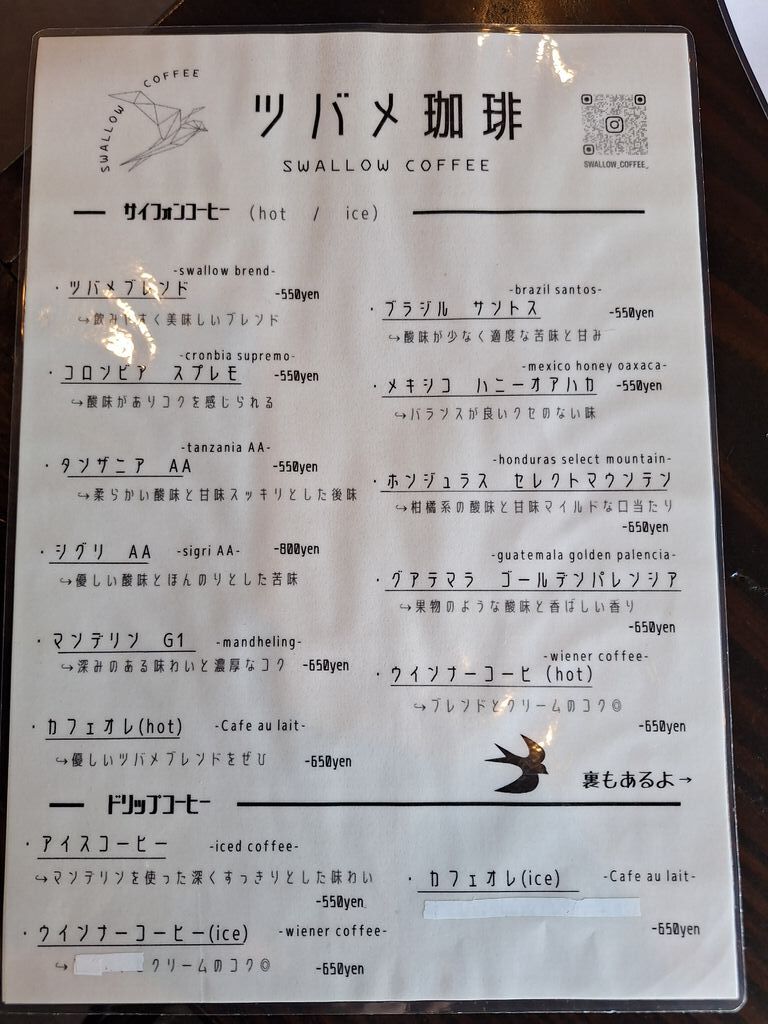 SWALLOW COFFEE
ツバメ珈琲
SWALLOW COFFEE
SWALLOW_COFFEE_
サイフォンコーヒー (hot / ice)
-swallow brend-
・ツバメブレンド -550yen
↪飲みやすく美味しいブレンド
-cronbia supremo-
・コロンビア スプレモ -550yen
↪酸味がありコクを感じられる
-tanzania AA-
・タンザニア AA -550yen
↪柔らかい酸味と甘味スッキリとした後味
・シグリ AA -sigri AA- -800yen
↪優しい酸味とほんのりとした苦味
・マンデリン G1 -mandheling-
↪深みのある味わいと濃厚なコク -650yen
・カフェオレ(hot) -Cafe au lait-
↪優しいツバメブレンドをぜひ -650yen
-brazil santos-
・ブラジル サントス -550yen
↪酸味が少なく適度な苦味と甘み
-mexico honey oaxaca-
・メキシコ ハニーオアハカ -550yen
↪バランスが良いクセのない味
-honduras select mountain-
・ホンジュラス セレクトマウンテン
↪柑橘系の酸味と甘味マイルドな口当たり
-650yen
-guatemala golden palencia-
・グアテマラ ゴールデンパレンシア
↪果物のような酸味と香ばしい香り
-650yen
-wiener coffee-
・ウインナーコーヒ(hot)
↪ブレンドとクリームのコク◎
-650yen
裏もあるよ→
ドリップコーヒー
・アイスコーヒー -iced coffee-
↪マンデリンを使った深くすっきりとした味わい
-550yen
・ウインナーコーヒー(ice) -wiener coffee-
↪ クリームのコク◎ -650yen
・カフェオレ(ice) -Cafe au lait-
-650yen